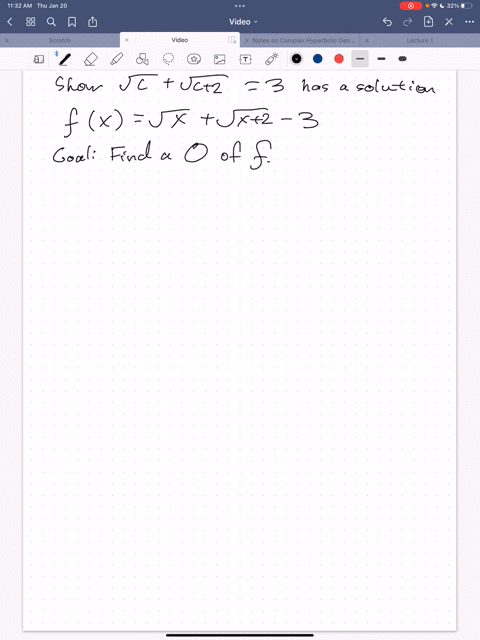 11:32 AM Thu Jan 20
32%
Video
Scratch
Video
Notes on Complex Hyperbolic Gen...
Lecture 1
Show √c + √c+2 = 3 has a solution
f(x) = √x + √x+2 - 3
Goal: Find a 0 of f.